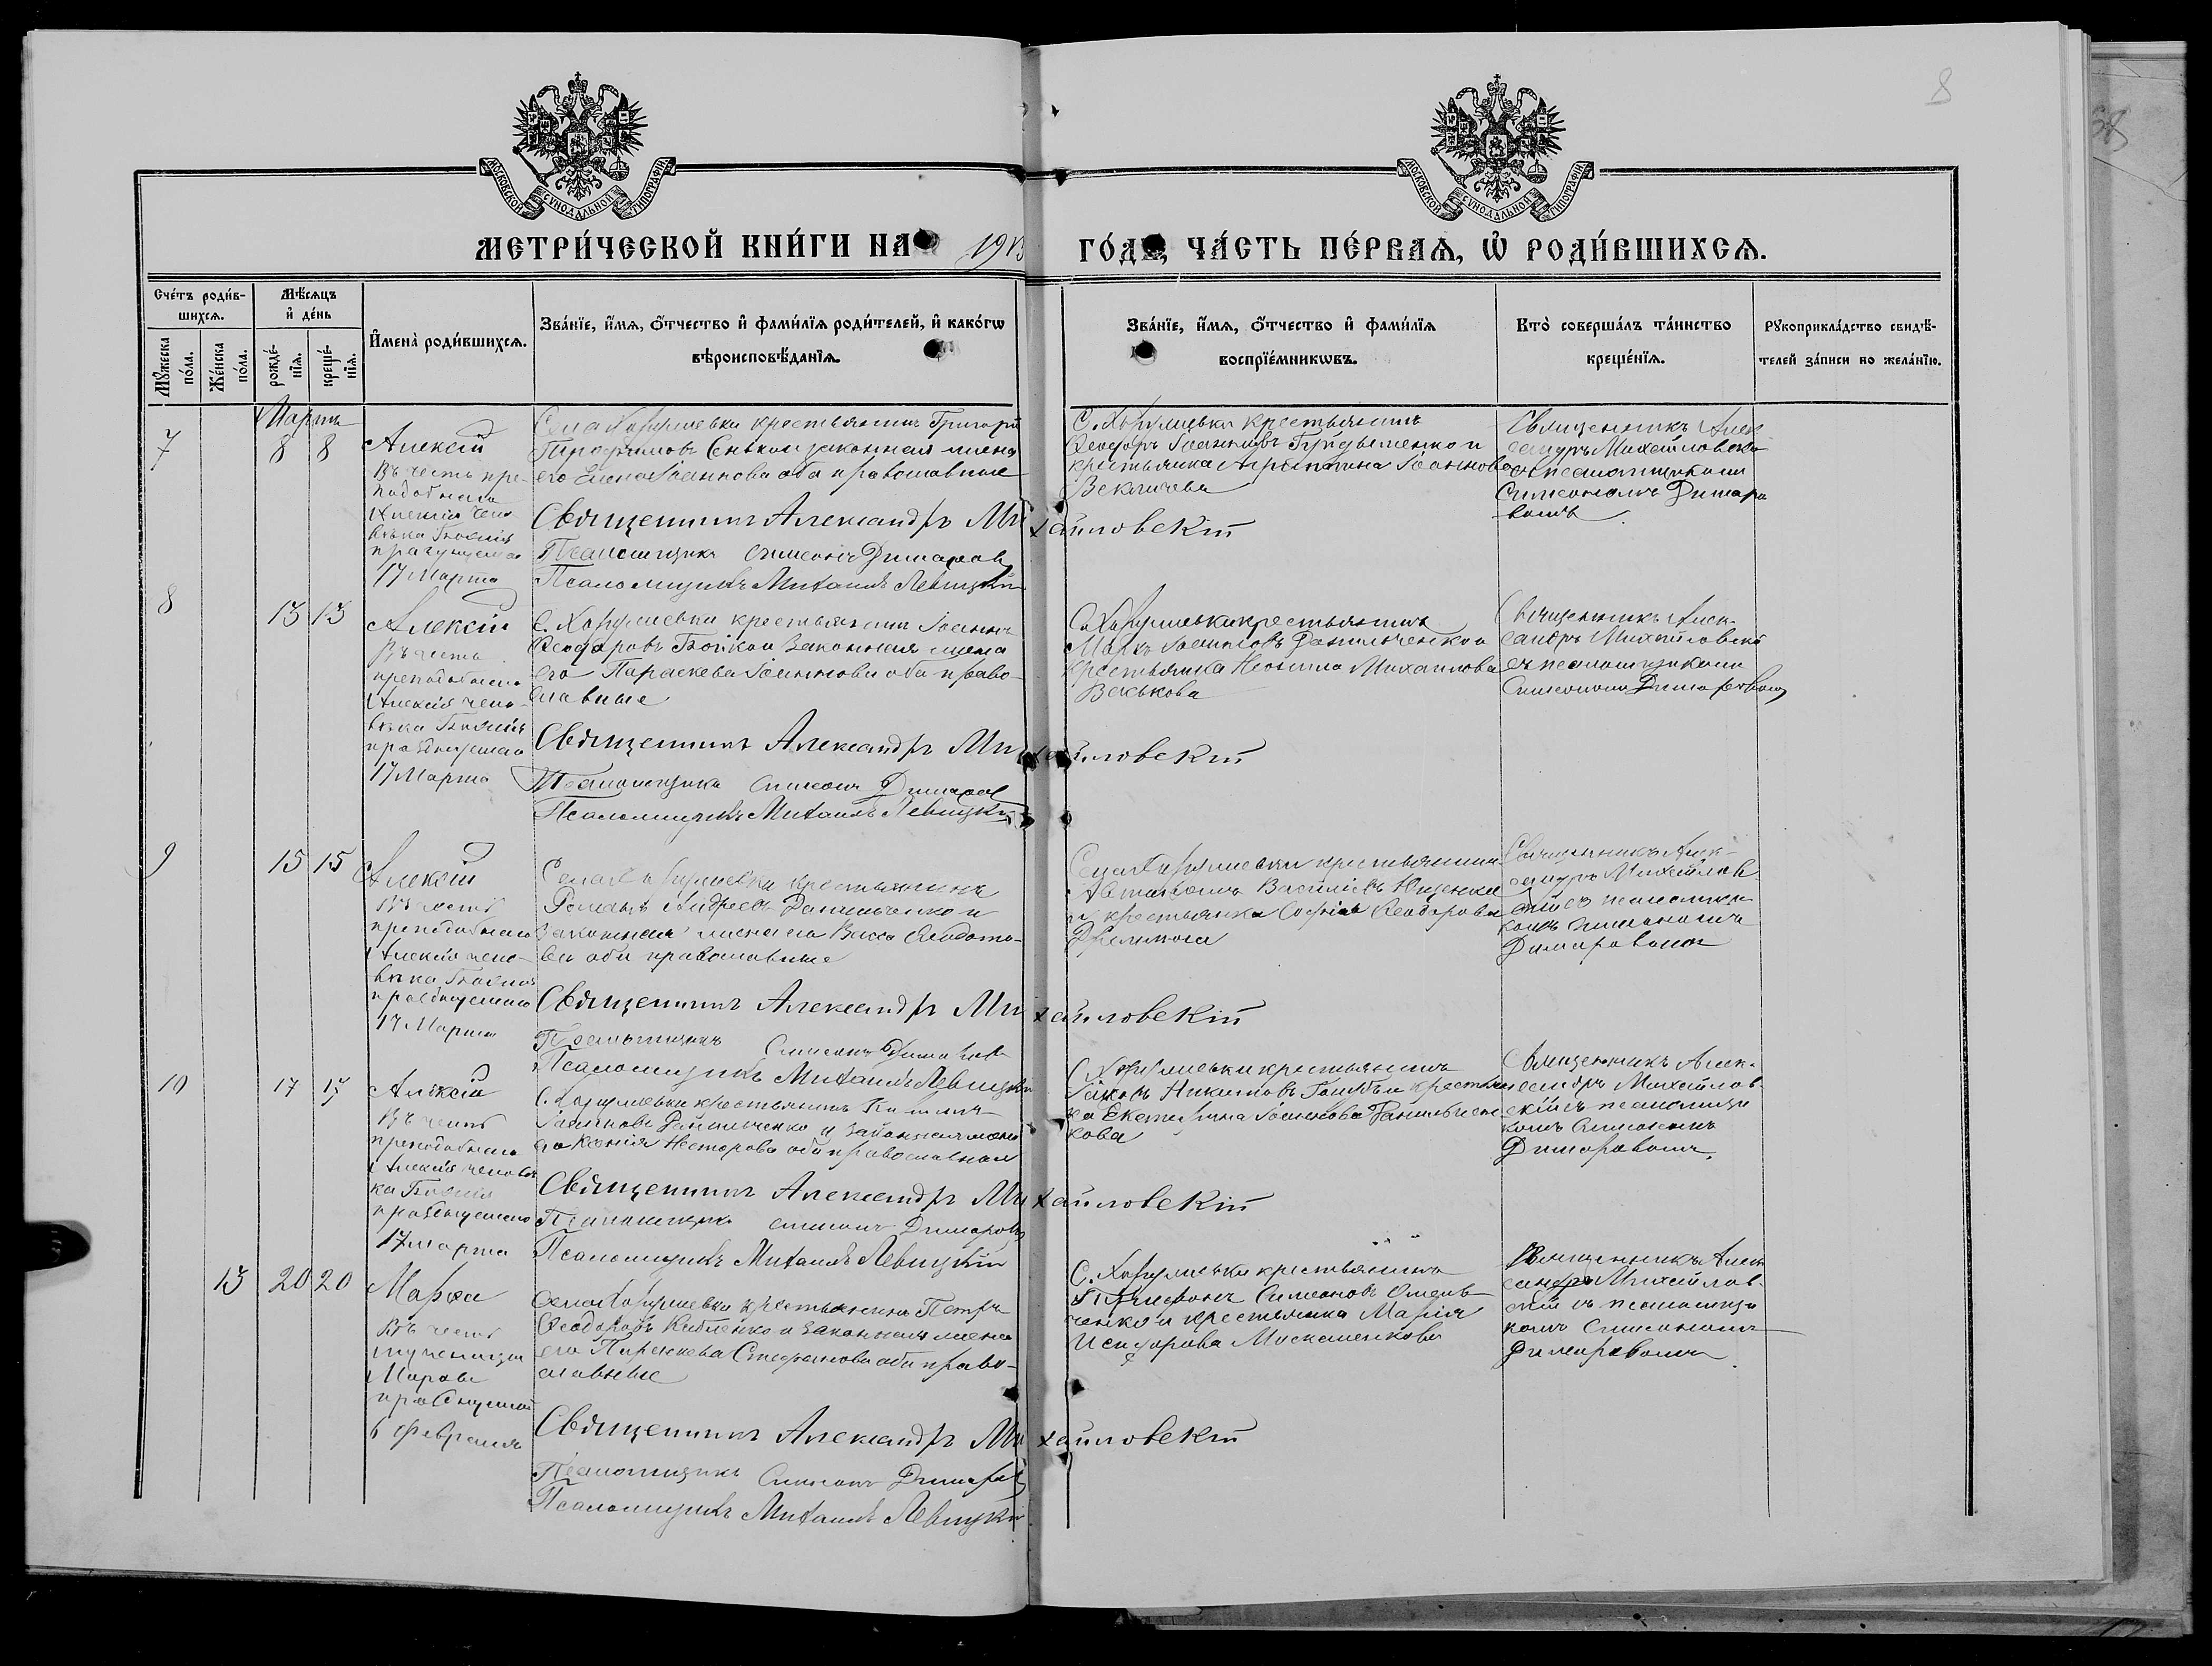 8
МОСКОВСКОЙ СѴНОДАЛЬНОЙ ТИПОГРАФІИ
МОСКОВСКОЙ СѴНОДАЛЬНОЙ ТИПОГРАФІИ
МЕТРИ́ЧЕСКОЙ КНИ́ГИ НА 1913 ГО́ДЪ, ЧА́СТЬ ПЕ́РВАѦ, Ѡ҆ РОДИ́ВШИХСѦ.
Счéтъ роди́в-
шихсѧ.
Мꙋ́жеска
по́ла.
Же́нска
по́ла.
Мѣ́сѧцъ
и҆ де́нь
рожде́-
нїѧ.
креще́-
нїѧ.
И҆мена̀ роди́вшихсѧ.
Зва́нїе, и҆́мѧ, ѻ҆́тчество и҆ фами́лїѧ роди́телей, и҆ како́гѡ
вѣроисповѣ́данїѧ.
Зва́нїе, и҆́мѧ, ѻ҆́тчество и҆ фами́лїѧ
воспрїе́мникѡвъ.
Кто̀ соверша́лъ та́инство
креще́нїѧ.
Рꙋкоприкла́дство свидѣ́-
телей за́писи по жела́нїю.
Мартъ
7
8 8
Алексій
Въ честь пре-
подобнаго
Алексія чело
вѣка Божія
празднуемаго
17 Марта
Села крестьянинъ Григорій
законная жена
его Елена Іоаннова оба православные
Священникъ Александръ Михайловскій
Псаломщикъ Симеонъ Димаровъ
Псаломщикъ Михаилъ Левицкій
С. крестьянинъ
Ѳеодоръ Іоанновъ и
крестьянка Іоаннова
Священникъ Алек
сандръ Михайловскій
съ псаломщикомъ
Симеономъ Димаро
вымъ
8
13 13
Алексій
Въ честь
преподобнаго
Алексія чело-
вѣка Божія
празднуемаго
17 Марта
С. крестьянинъ Іоаннъ
Ѳеодоровъ Бойко и законная жена
его Параскева Іоаннова оба право-
славные
Священникъ Александръ Михайловскій
Псаломщикъ Симеонъ Димаровъ
Псаломщикъ Михаилъ Левицкій
С. крестьянинъ
Маркъ Іоанновъ Данильченко и
крестьянка Михаилова
Священникъ Алек-
сандръ Михайловскій
съ псаломщикомъ
Симеономъ Димаровымъ
9
15 15
Алексій
Въ честь
преподобнаго
Алексія чело-
вѣка Божія
празднуемаго
17 Марта
Села крестьянинъ
Романъ Андреевъ Данильченко и
законная жена его Васса
ва оба православные
Священникъ Александръ Михайловскій
Псаломщикъ Симеонъ Димаровъ
Псаломщикъ Михаилъ Левицкій
Села крестьянинъ
Васильевъ
и крестьянка Софія Ѳеодорова
Священникъ Алек-
сандръ Михайлов-
скій съ псаломщи-
комъ Симеономъ
Димаровымъ
10
17 17
Алексій
Въ честь
преподобнаго
Алексія человѣ
ка Божія
празднуемаго
17 марта
С. крестьянинъ
Іоанновъ Данильченко и законная жена
его Ксенія Несторова оба православные
Священникъ Александръ Михайловскій
Псаломщикъ Симеонъ Димаровъ
Псаломщикъ Михаилъ Левицкій
С. крестьянинъ
Никитовъ и крестьян
ка Екатерина Іоаннова Данильчен-
кова
Священникъ Алек-
сандръ Михайлов-
скій съ псаломщи
комъ Симеономъ
Димаровымъ.
13
20 20
Марѳа
Въ честь
мученицы
Марѳы
празднуемой
6 февраля
Села крестьянинъ Петръ
Ѳеодоровъ и законная жена
его Параскева Стефанова оба право-
славные
Священникъ Александръ Михайловскій
Псаломщикъ Симеонъ Димаровъ
Псаломщикъ Михаилъ Левицкій
С. крестьянинъ
Симеоновъ
и крестьянка Марія
Исидорова Москаленкова
Священникъ Алек
сандръ Михайлов-
скій съ псаломщи
комъ Симеономъ
Димаровымъ.